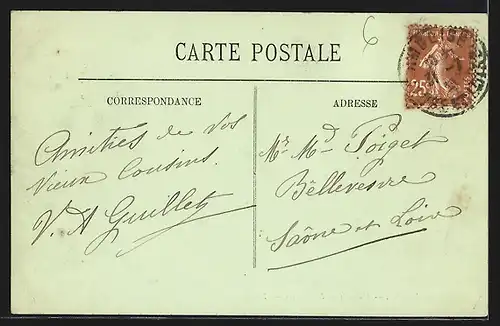 6
CARTE POSTALE
CORRESPONDANCE
ADRESSE
25
Amitiés de vos
vieux Cousins.
V. A Guillet
Mr. Md. Poiget
Bellevesvre
Saône et Loire